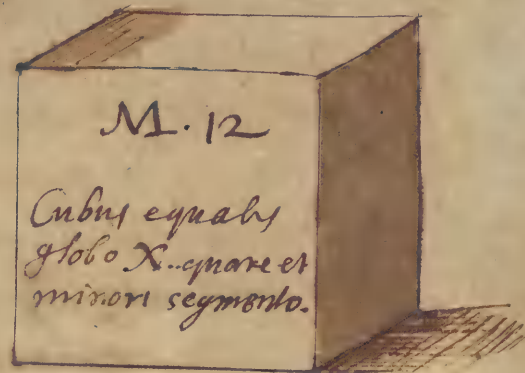 M. 12
Cubus equalis
globo X. quare et
minori segmento.